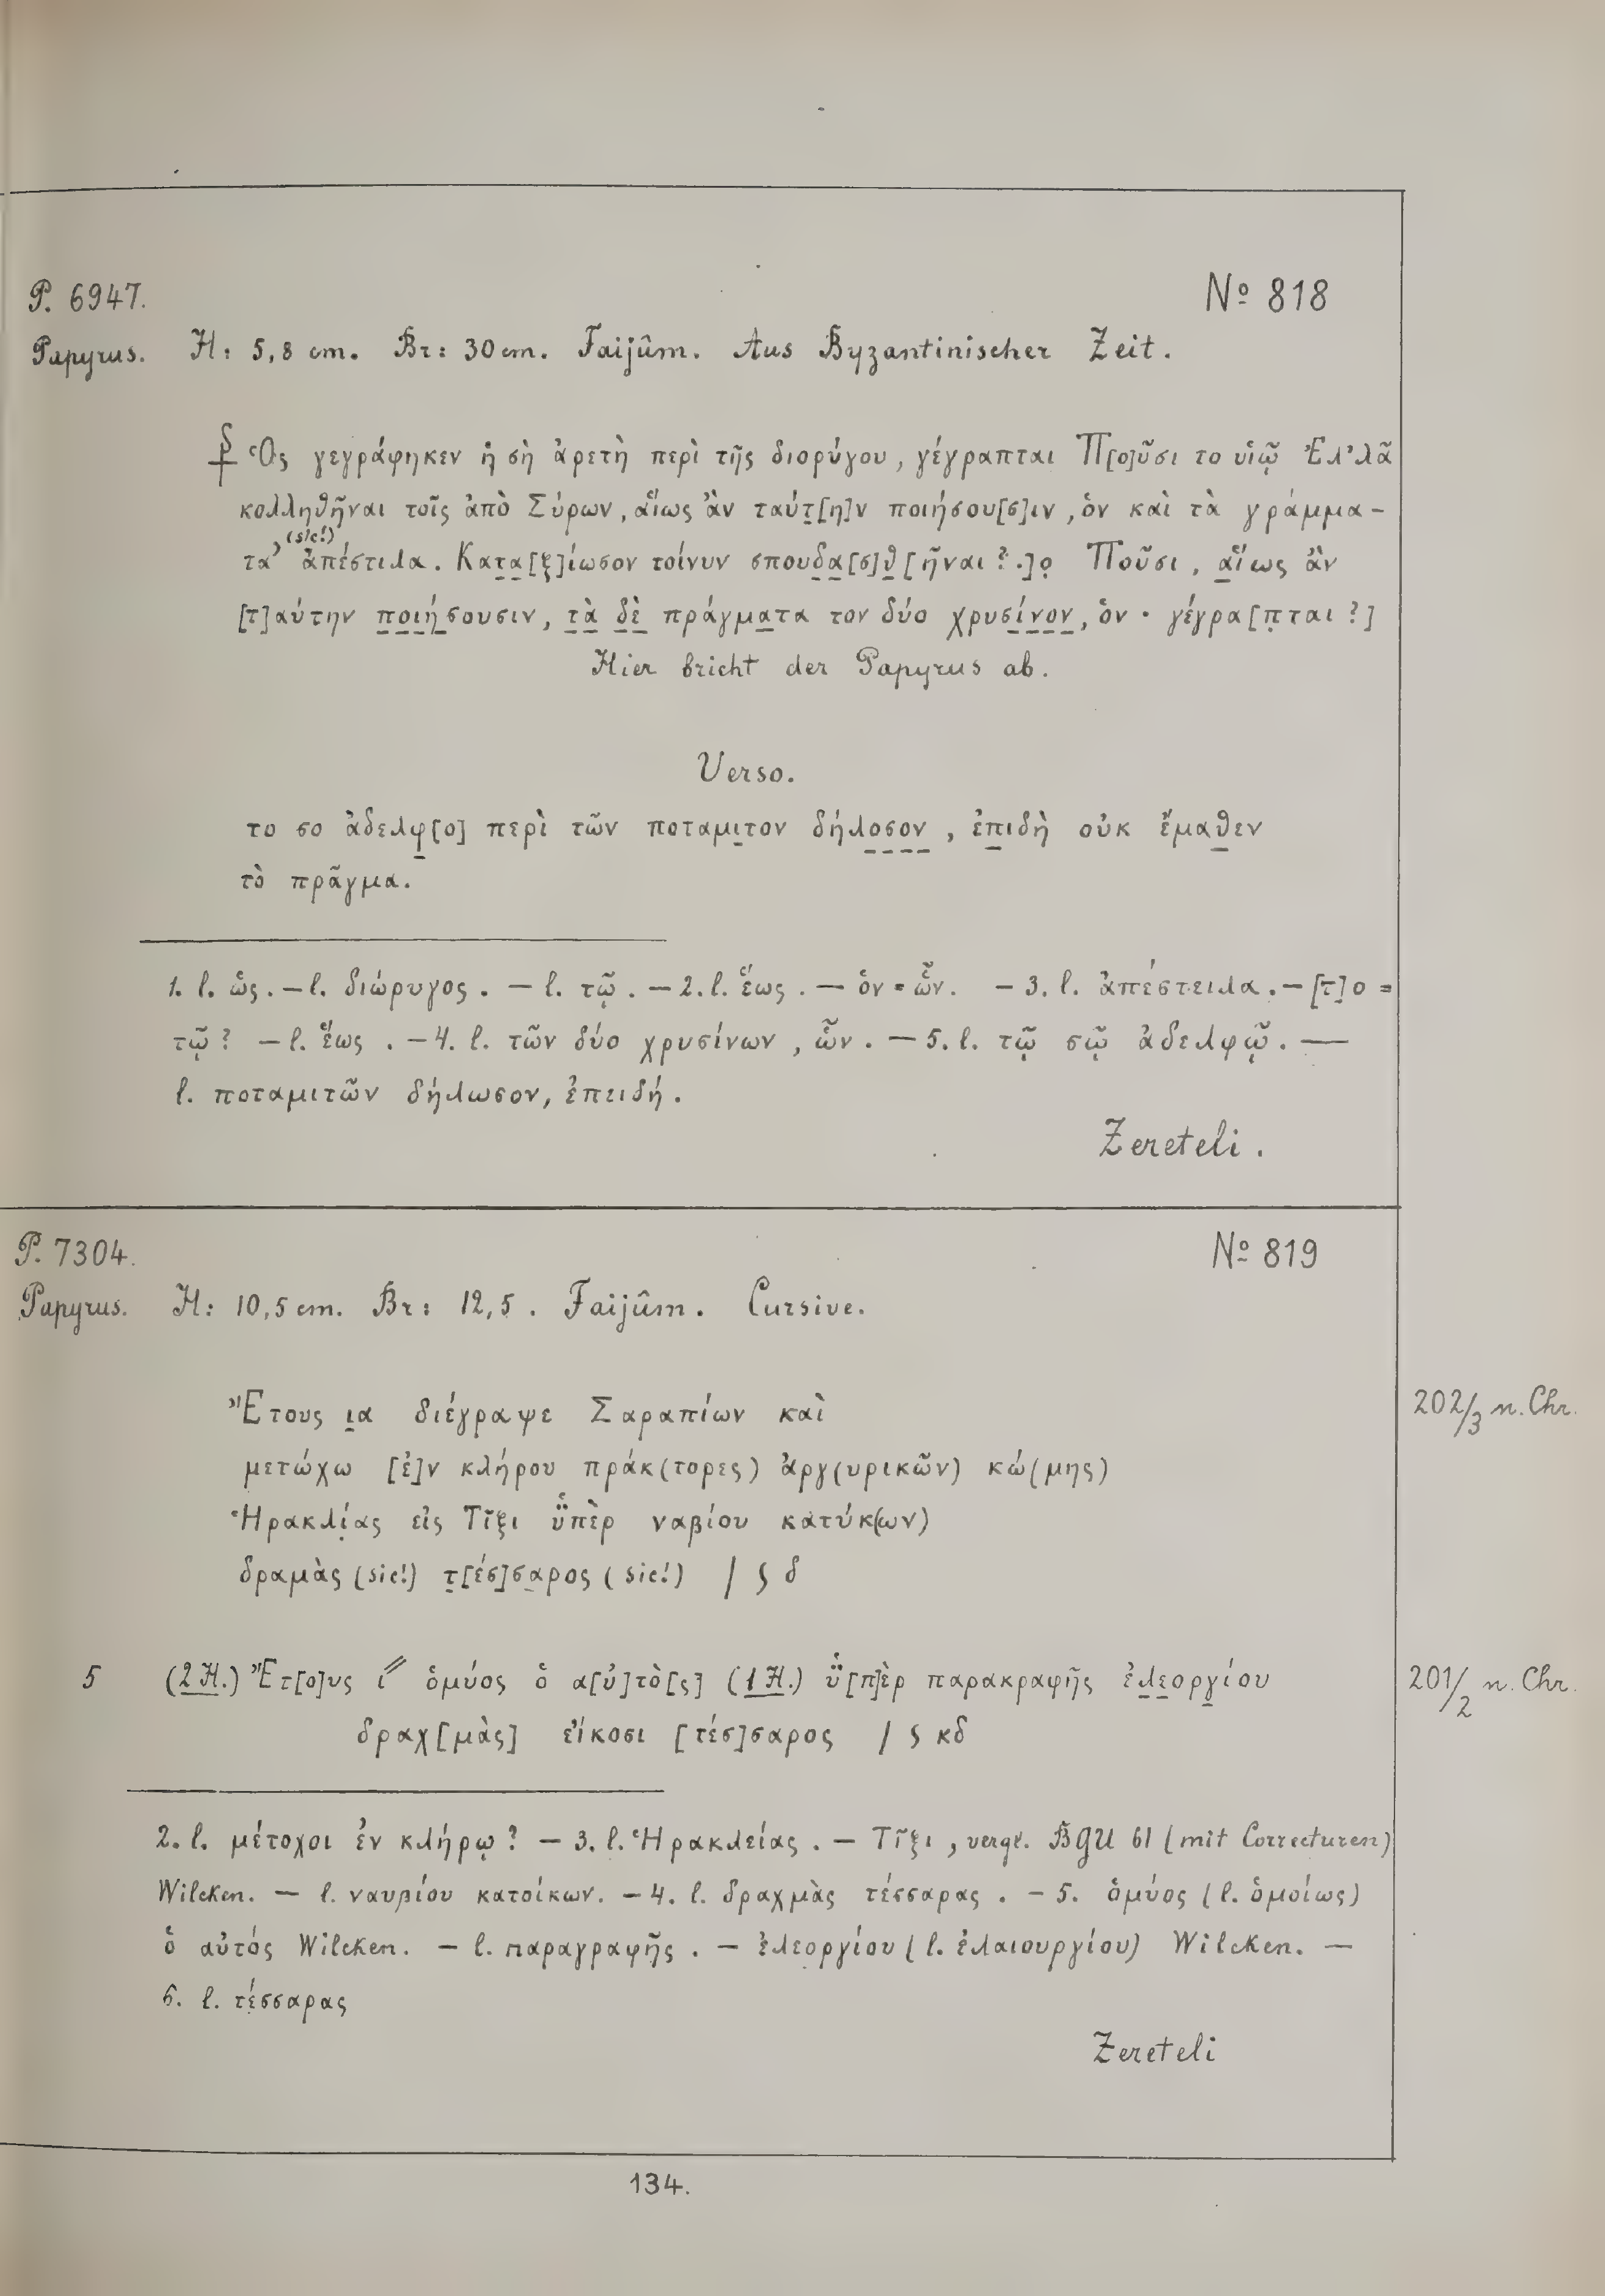 P. 6947. № 818
Papyrus. H: 5,8 cm. Br: 30 cm. Faijûm. Aus Byzantinischer Zeit.
⳨ Ὁς γεγράφηκεν ἡ σὴ ἀρετὴ περὶ τῆς διορύγου, γέγραπται Π[ο]ῦσι το υἱῷ Ἐλ’λᾶ
κολληθῆναι τοῖς ἀπὸ Σύρων, αἵως ἂν ταύτ̣[η]ν ποιήσου[σ]ιν, ὁν καὶ τὰ γράμμα-
τα’ ἀπέστιλα (sic!). Κατ̣α̣[ξ]ίωσον τοίνυν σπουδ̣α̣[σ]θ̣[ῆναι ? .]ο̣ Ποῦσι, α̣ἵως ἂν
[τ]αύτην π̣ο̣ι̣ή̣σουσιν, τ̣ὰ̣ δ̣ὲ̣ πράγμα̣τα τον δύο χρυσί̣ν̣ο̣ν̣, ὁν · γέγρα[πται ?]
Hier bricht der Papyrus ab.
Verso.
το σο ἀδελφ̣[ο] περὶ τῶν ποταμι̣τον δήλ̣ο̣σ̣ο̣ν̣, ἐπ̣ιδὴ οὐκ ἔμαθ̣εν
τὸ πρᾶγμα.
1. l. ὡς. – l. διώρυγος. – l. τῷ. – 2. l. ἕως. – ὁν = ὧν. – 3. l. ἀπέστειλα. – [τ]ο =
τῷ ? – l. ἕως. – 4. l. τῶν δύο χρυσίνων, ὧν. – 5. l. τῷ σῷ ἀδελφῷ. —
l. ποταμιτῶν δήλωσον, ἐπειδή.
Zereteli.
P. 7304. № 819
Papyrus. H: 10,5 cm. Br: 12,5. Faijûm. Cursive.
Ἔτους ι̣α διέγραψε Σαραπίων καὶ 202/3 n. Chr.
μετώχω [ἐ]ν κλήρου πράκ(τορες) ἀργ(υρικῶν) κώ(μης)
Ἡρακλί̣ας εἰς Τῖξι ὑ̈πὲρ ναβίου κατύκ(ων)
δραμὰς (sic!) τ̣[έσ]σα̣ρος (sic!) / ʃ δ
5 (2 H.) Ἔτ[ο]υς ι// ὁμύος ὁ α[ὐ]τὸ[ς] (1 H.) ὑ̈[π]ὲρ παρακραφῆς ἐλ̣ε̣οργ̣ίου 201/2 n. Chr.
δραχ[μὰς] εἴκοσι [τέσ]σαρος / ʃ κδ
2. l. μέτοχοι ἐν κλήρῳ ? – 3. l. Ἡρακλείας. – Τῖξι, vergl. BGU 61 (mit Correcturen)
Wilcken. – l. ναυβίου κατοίκων. – 4. l. δραχμὰς τέσσαρας. – 5. ὁμύος (l. ὁμοίως)
ὁ αὐτός Wilcken. – l. παραγραφῆς. – ἐλεοργίου (l. ἐλαιουργίου) Wilcken. –
6. l. τέσσαρας
Zereteli
134.